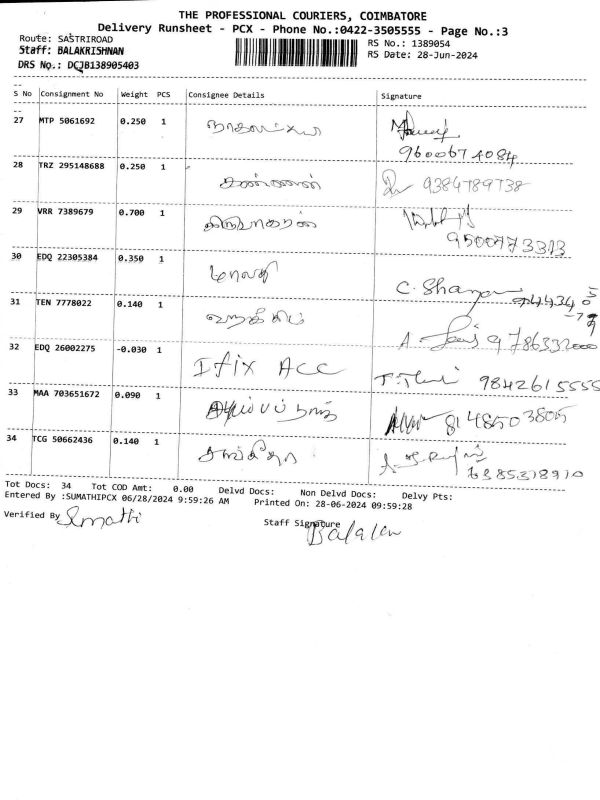 THE PROFESSIONAL COURIERS, COIMBATORE
Delivery Runsheet - PCX - Phone No.:0422-3505555 - Page No.:3
Route: SASTRIROAD
RS No.: 1389054
Staff: BALAKRISHNAN
RS Date: 28-Jun-2024
DRS No.: DCJB138905403
--
S No Consignment No Weight PCS Consignee Details Signature
--
27 MTP 5061692 0.250 1
9600674084
28 TRZ 295148688 0.250 1 கண்ணன் 9384789738
29 VRR 7389679 0.700 1
9500773313
30 EDQ 22305384 0.350 1 மாலதி
C. Shan
31 TEN 7778022 0.140 1
A 9786332000
32 EDQ 26002275 -0.030 1 Ifix ACC 9842615555
33 MAA 703651672 0.090 1 8148503805
34 TCG 50662436 0.140 1 சங்கீதா
6385318910
Tot Docs: 34 Tot COD Amt: 0.00 Delvd Docs: Non Delvd Docs: Delvy Pts:
Entered By :SUMATHIPCX 06/28/2024 9:59:26 AM Printed On: 28-06-2024 09:59:28
Verified By Sumathi
Staff Signature Balakn